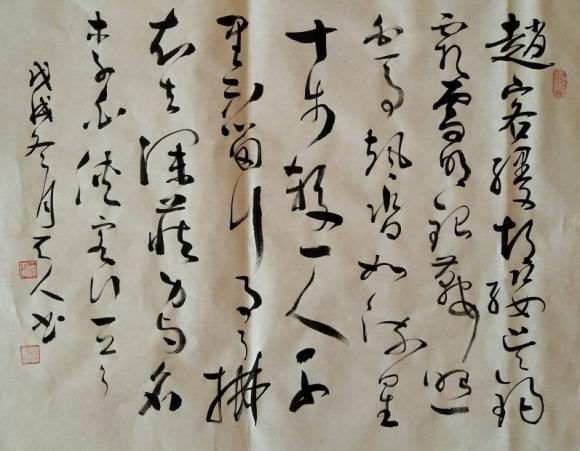 趙客縵胡纓吴钩
霜雪明銀鞍照
白馬颯沓如流星
十步殺一人千
里不留行事了拂
衣去深藏身与名
李白俠客行
戊戌冬月人书